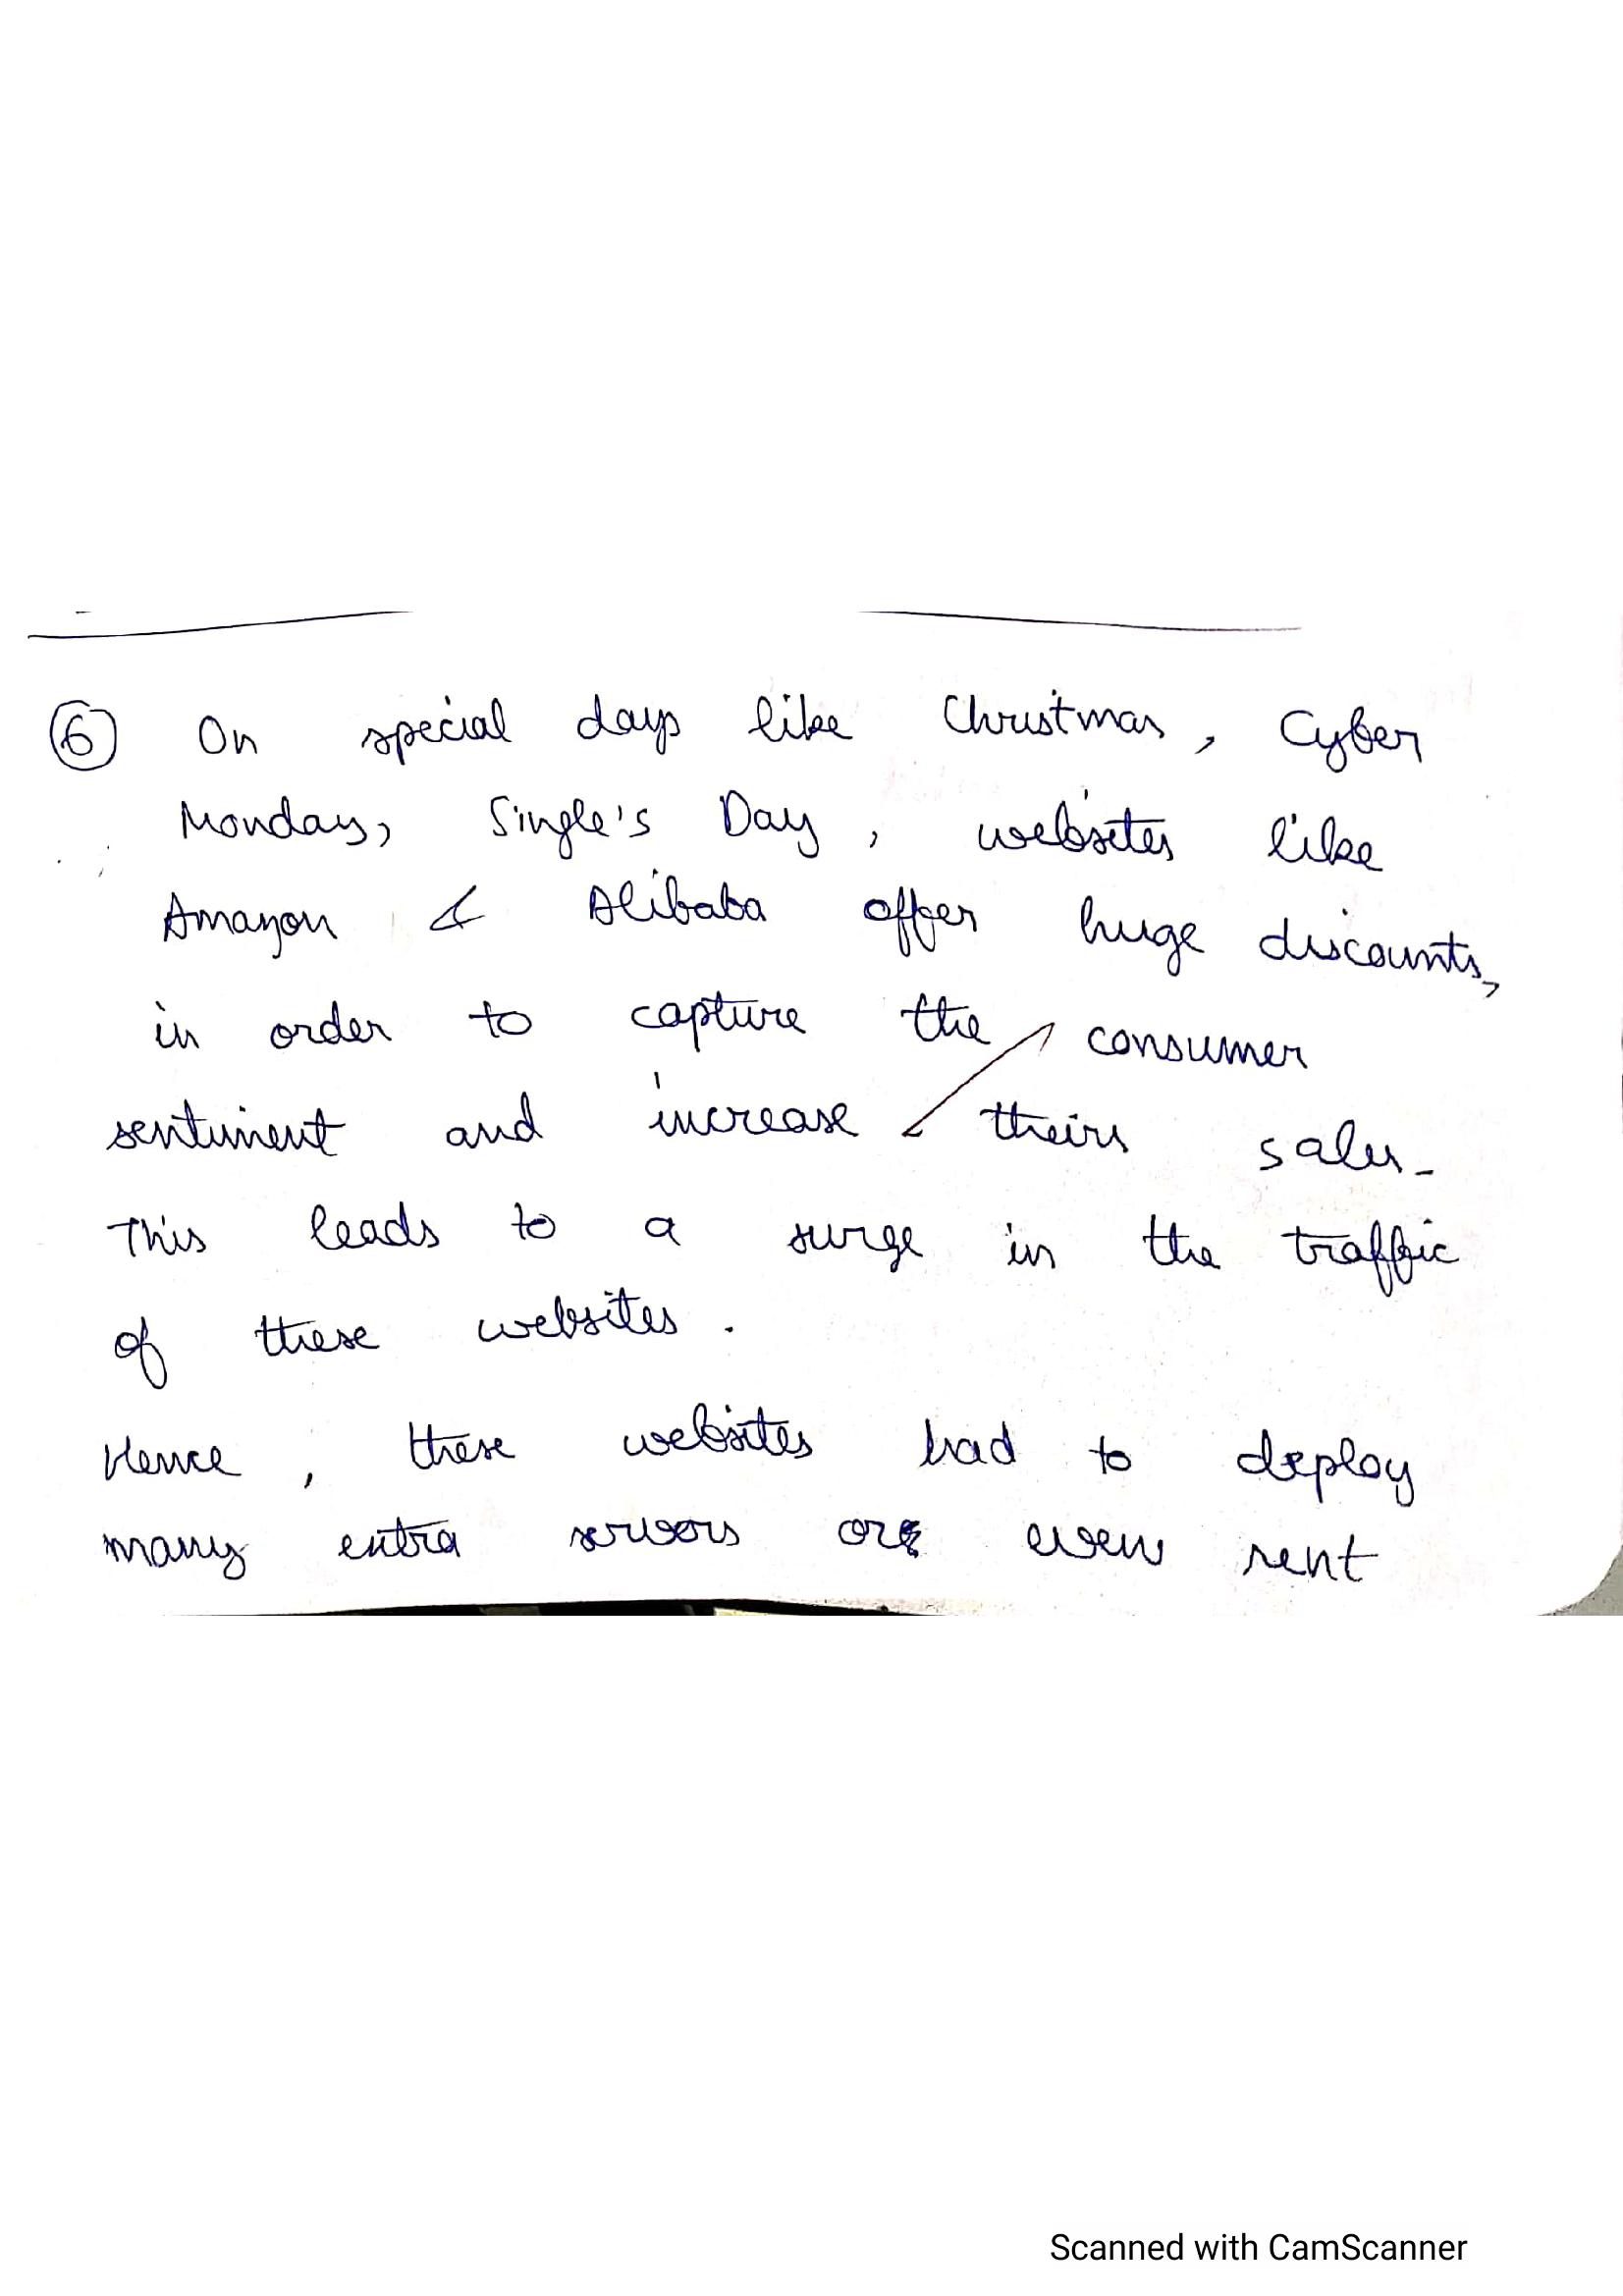 6 On special days like Christmas, Cyber
Monday, Single's Day, websites like
Amazon & Alibaba offer huge discounts,
in order to capture the consumer
sentiment and increase their sales.
This leads to a surge in the traffic
of these websites.
Hence, these websites had to deploy
many extra servers or even rent
Scanned with CamScanner